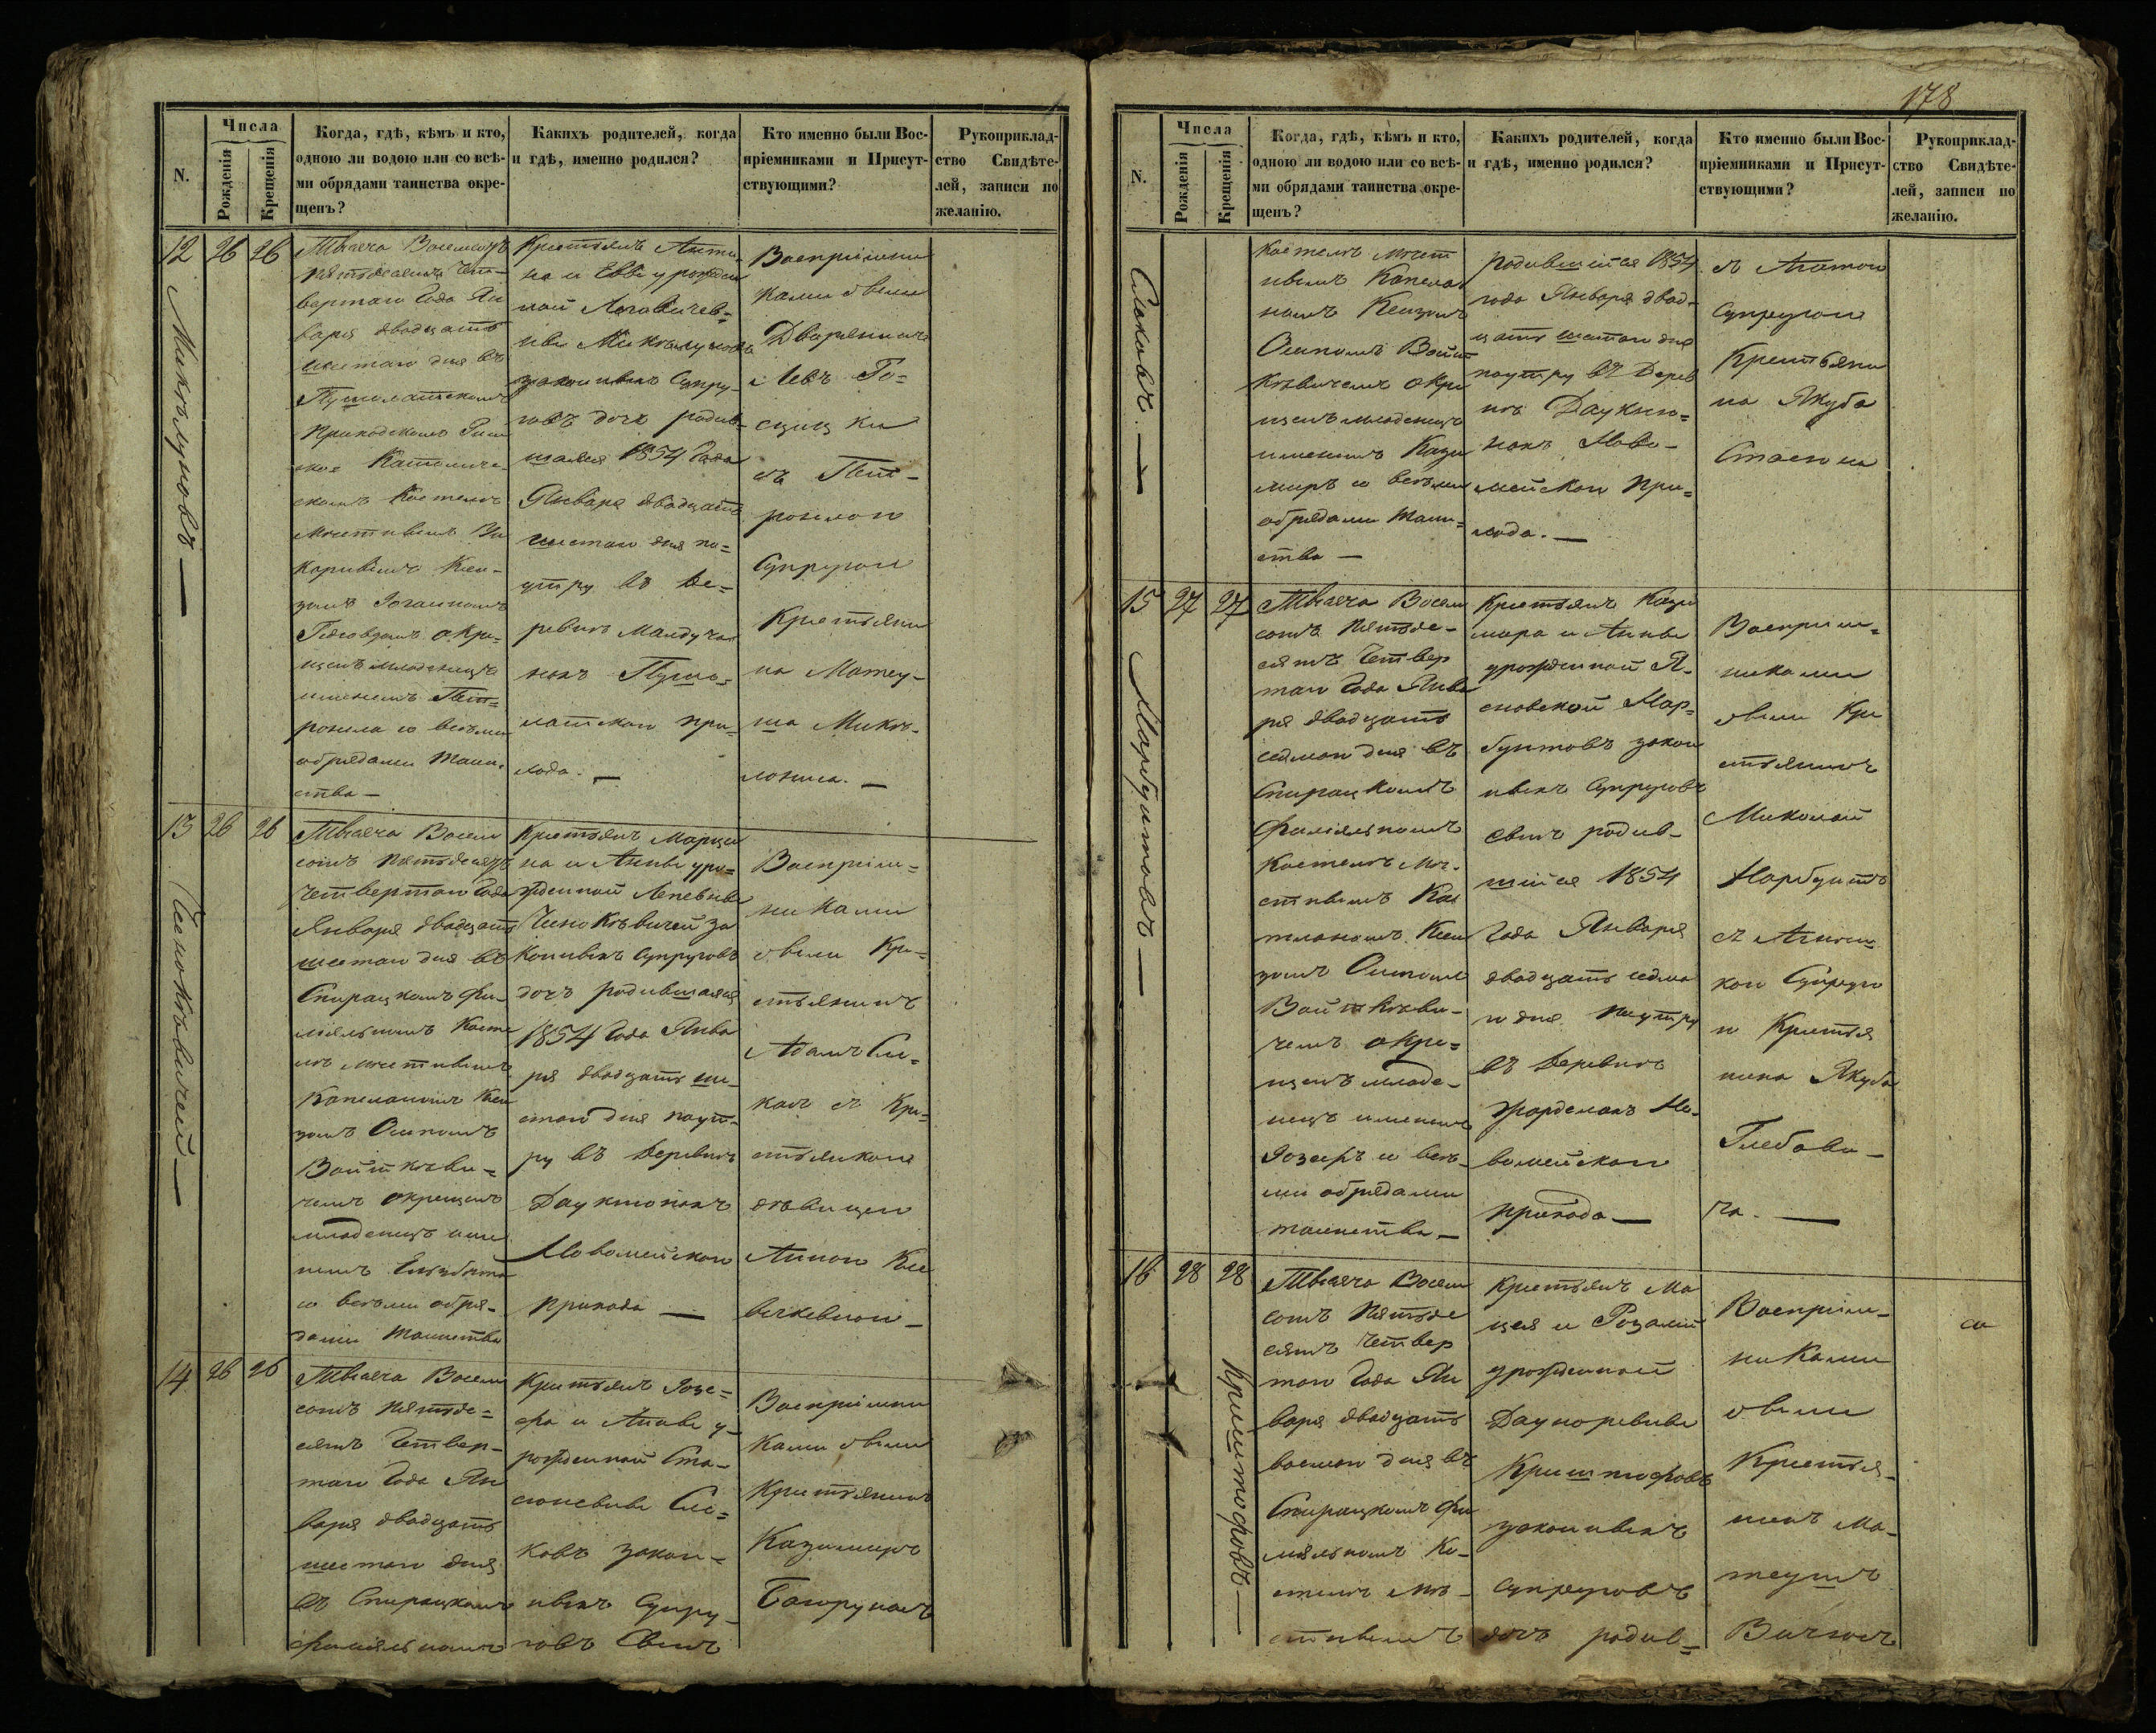 178
N.
Числа
Рожденія
Крещенія
Когда, гдѣ, кѣмъ и кто,
одною ли водою или со всѣ-
ми обрядами таинства окре-
щенъ?
Какихъ родителей, когда
и гдѣ, именно родился?
Кто именно были Вос-
пріемниками и Присут-
ствующими?
Рукоприклад-
ство Свидѣте-
лей, записи по
желанію.
12 26 26
Тысяча Восемьсотъ
пятьдесятъ чет-
вертаго Года Ян
варя двадцать
шестаго дня въ
Приходскомъ Рим
ско Католиче-
скомъ Костелѣ
мѣстнымъ Ви
каріемъ Ксен-
зомъ
окре-
щенъ младенецъ
именемъ Пет-
ронела со всѣми
обрядами Таин-
ства —
Крестьянъ Анто
на и Евы урожден
ной
законныхъ Супру-
говъ дочь родив-
шаяся 1854 Года
Января двадцать
шестаго дня по-
утру въ де-
ревнѣ
при-
хода. —
Воспріемни
ками были
Дворянинъ
Левъ
съ Пет-
ронелою
Супругою
Крестьяни
на Матеу-
ша
13 26 26
Тысяча Восем
сотъ пятьдесятъ
четвертаго Года
Января двадцать
шестаго дня въ
Спирацкомъ фи-
ліяльномъ Косте
лѣ мѣстнымъ
Капеланомъ Ксен
зомъ Осипомъ
Войткѣви-
чемъ окрещенъ
младенецъ име
немъ Елизбета
со всѣми обря-
дами Таинства
Крестьянъ Марци
на и Анны уро-
жденной
за
конныхъ Супруговъ
дочь родившаяся
1854 Года Янва
ря двадцать ше-
стаго дня поут-
ру въ Деревнѣ
прихода —
Воспріем-
никами
были Кре-
стьянинъ
Адамъ
съ Кре-
стьянкою
дѣвицею
Анною
14 26 26
Тысяча Восем
сотъ пятьде-
сятъ Четвер-
таго Года Ян
варя двадцать
шестаго дня
въ Спирацкомъ
филіяльномъ
Крестьянъ Іозе-
фа и Анны у-
рожденной Ста-
Сло-
ковъ закон-
ныхъ Супру-
говъ Сынъ
Воспріемни
ками были
Крестьянинъ
Казимиръ
N.
Числа
Рожденія
Крещенія
Когда, гдѣ, кѣмъ и кто,
одною ли водою или со всѣ-
ми обрядами таинства окре-
щенъ?
Какихъ родителей, когда
и гдѣ, именно родился?
Кто именно были Вос-
пріемниками и Присут-
ствующими?
Рукоприклад-
ство Свидѣте-
лей, записи по
желанію.
Слоковъ. —
Костелѣ мѣст
нымъ Капела
номъ Ксензомъ
Осипомъ Войт
кѣвичемъ окре
щенъ младенецъ
именемъ Кази
миръ со всѣми
обрядами Таин-
ства —
родившійся 1854
года Января двад-
цать шестаго дня
поутру въ Дерев
нѣ
при-
хода. —
съ Агатою
Супругою
Крестьяни
на Якуба
15 27 27
Нарбутовъ —
Тысяча Восем
сотъ пятьде-
сятъ Четвер
таго Года Янва
ря двадцать
седмаго дня въ
Спирацкомъ
филіяльномъ
Костелѣ мѣ-
стнымъ Ка
пеланомъ Ксен
зомъ Осипомъ
Войткѣви-
чемъ окре-
щенъ младе-
нецъ именемъ
Іозефъ со всѣ-
ми обрядами
таинства —
Крестьянъ Кази
мира и Анны
урожденной Я-
Нар-
бутовъ закон
ныхъ Супруговъ
сынъ родив-
шійся 1854
Года Января
двадцать седма
го дня поутру
въ Деревнѣ
прихода —
Воспріем-
никами
были Кре
стьянинъ
Николай
Нарбутъ
Супруго
ю Крестья
нина Якуба
Глебови-
ча. —
16 28 28
Криштофовъ —
Тысяча Восем
сотъ Пятьде
сятъ Четвер
таго Года Ян
варя двадцать
восмаго дня въ
Спирацкомъ фи
ліяльномъ Ко-
стелѣ мѣ-
стнымъ
Крестьянъ Ма
цея и Розаліи
урожденной
Криштофовъ
законныхъ
супруговъ
дочь родив-
Воспріем-
никами
были
Крестья-
нинъ Ма-
теушъ